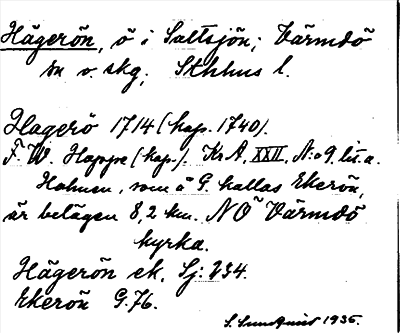 Hägerön, ö i Saltsjön; Värmdö
sn o. skg, Sthlms l.
Hagerö 1714 (kop. 1740).
F. W. Happe (kop.). Kr A, XXII, N:o 9, lit. a.
Holmen, som å G. kallas Ekerön,
är belägen 8,2 km. NO Värmdö
kyrka.
Hägerön ek. Sj: 234.
Ekerön G. 76.
S. Sundquist 1936.